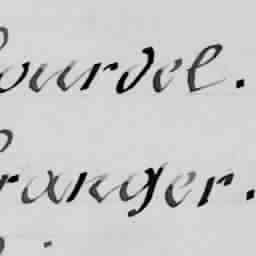 ourdel.
ranger.